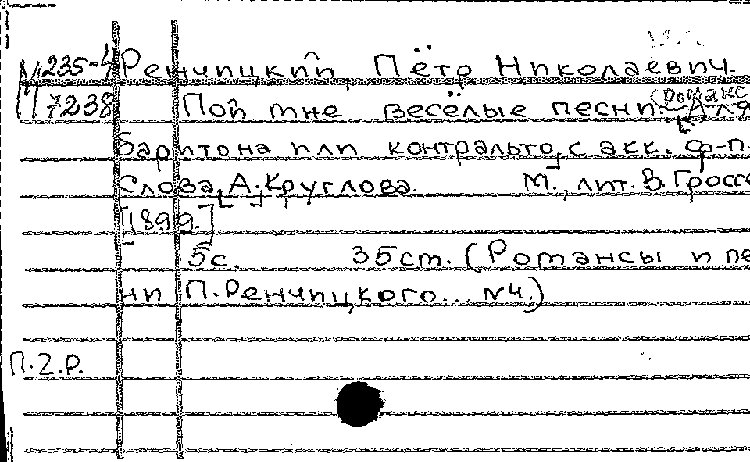 М 235-4 Ренчицкий, Пётр Николаевич.
7238 Пой мне весёлые песни (Романс) Для
баритона или контральто, с акк. ф-п.
Слова А. Круглова. М., лит. В. Гроссе
[1899]
5с. 35см. (Романсы и пе
ни П. Ренчицкого... №4.)
П.2.Р.